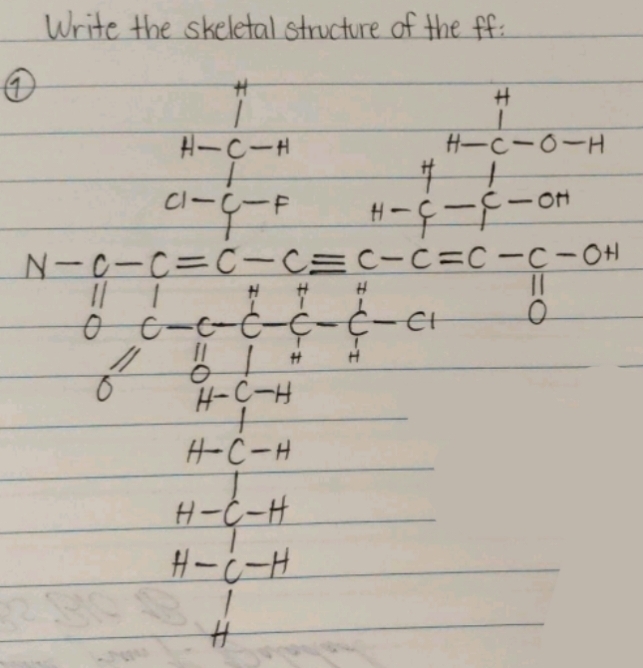 Write the skeletal structure of the ff:
①
H H
H-C-H H-C-O-H
H
Cl-C-F H-C-C-OH
N-C-C=C-C≡C-C=C-C-OH
H H H
O C-C-C-C-C-Cl O
H H
O O
H-C-H
H-C-H
H-C-H
H-C-H
H